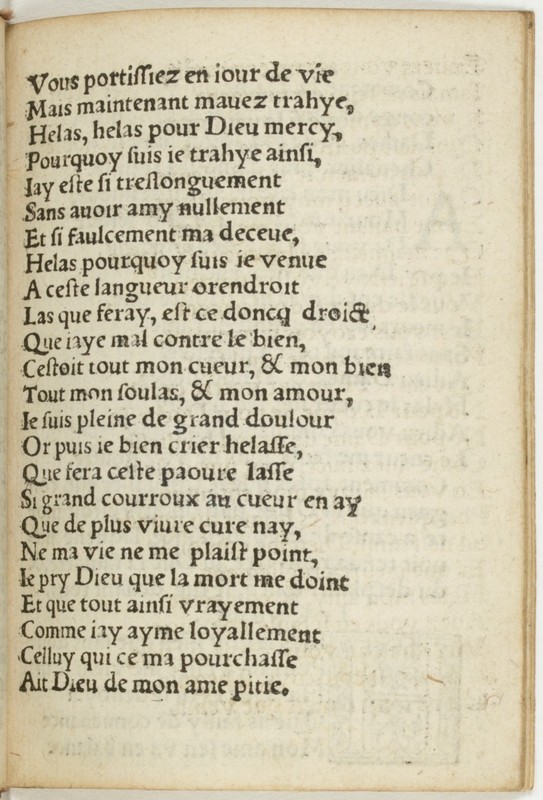 Vous portissiez en iour de vie
Mais maintenant mauez trahye,
Helas, helas pour Dieu mercy,
Pourquoy suis ie trahye ainsi,
Iay este si treslonguement
Sans auoir amy nullement
Et si faulcement ma deceue,
Helas pourquoy suis ie venue
A ceste langueur orendroit
Las que feray, est ce doncq droict,
Que iaye mal contre le bien,
Cestoit tout mon cueur, & mon bien
Tout mon soulas, & mon amour,
Ie suis pleine de grand doulour
Or puis ie bien crier helasse,
Que fera ceste paoure lasse
Si grand courroux au cueur en ay
Que de plus viure cure nay,
Ne ma vie ne me plaist point,
Ie pry Dieu que la mort me doint
Et que tout ainsi vrayement
Comme iay ayme loyallement
Celluy qui ce ma pourchasse
Ait Dieu de mon ame pitie.